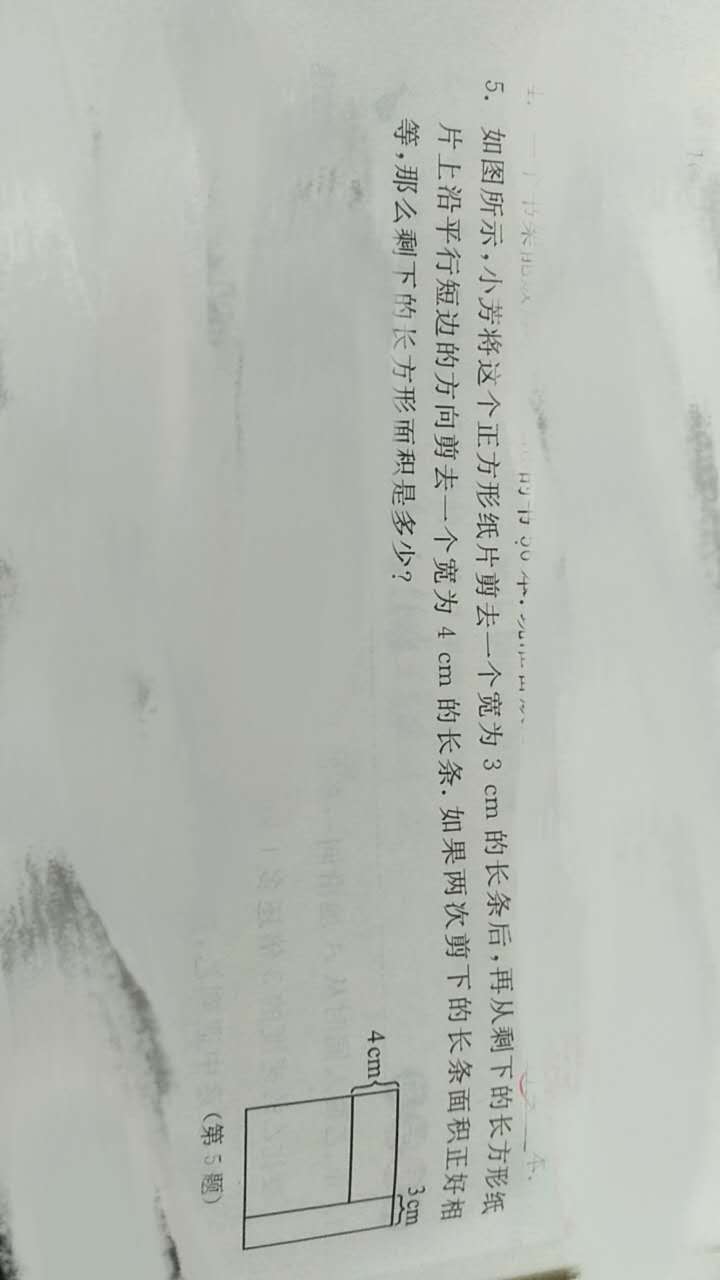 5. 如图所示,小芳将这个正方形纸片剪去一个宽为 3 cm 的长条后,再从剩下的长方形纸
片上沿平行短边的方向剪去一个宽为 4 cm 的长条. 如果两次剪下的长条面积正好相
等,那么剩下的长方形面积是多少?
3 cm
4 cm
(第 5 题)